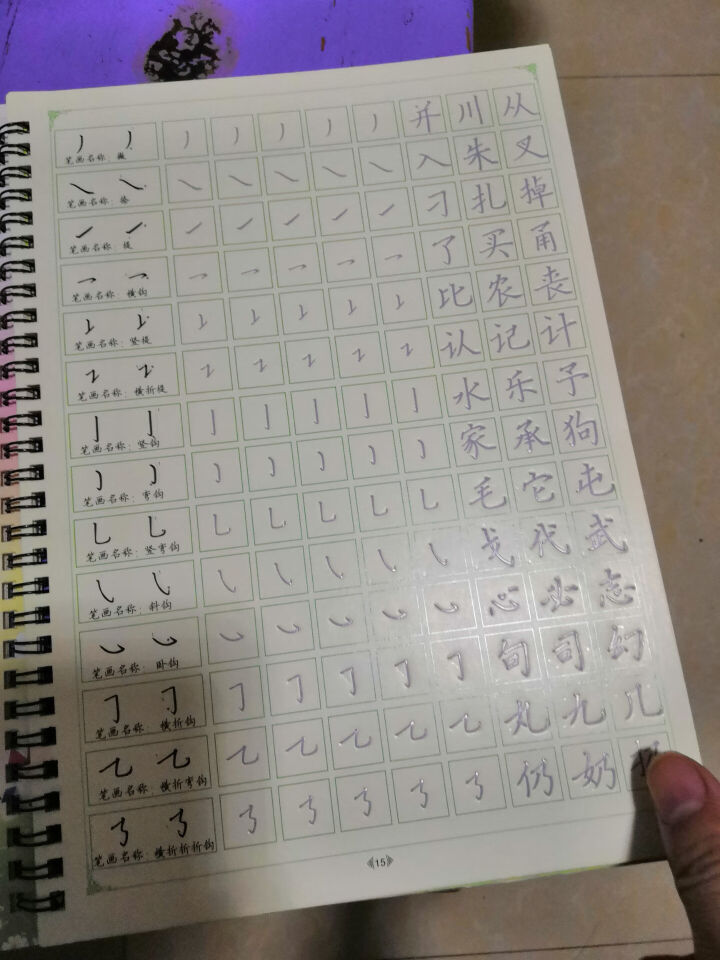 并 川 从
笔画名称：撇
入 朱 叉
笔画名称：捺
刁 扎 掉
笔画名称：提
了 买 甬
笔画名称：横钩
比 农 丧
笔画名称：竖提
认 记 计
笔画名称：横折提
水 乐 予
笔画名称：竖钩
家 承 狗
笔画名称：弯钩
毛 它 屯
笔画名称：竖弯钩
戈 代 武
笔画名称：斜钩
心 必 志
笔画名称：卧钩
旬 司 幻
笔画名称：横折钩
丸 九 几
笔画名称：横折弯钩
仍 奶
笔画名称：横折折折钩
15